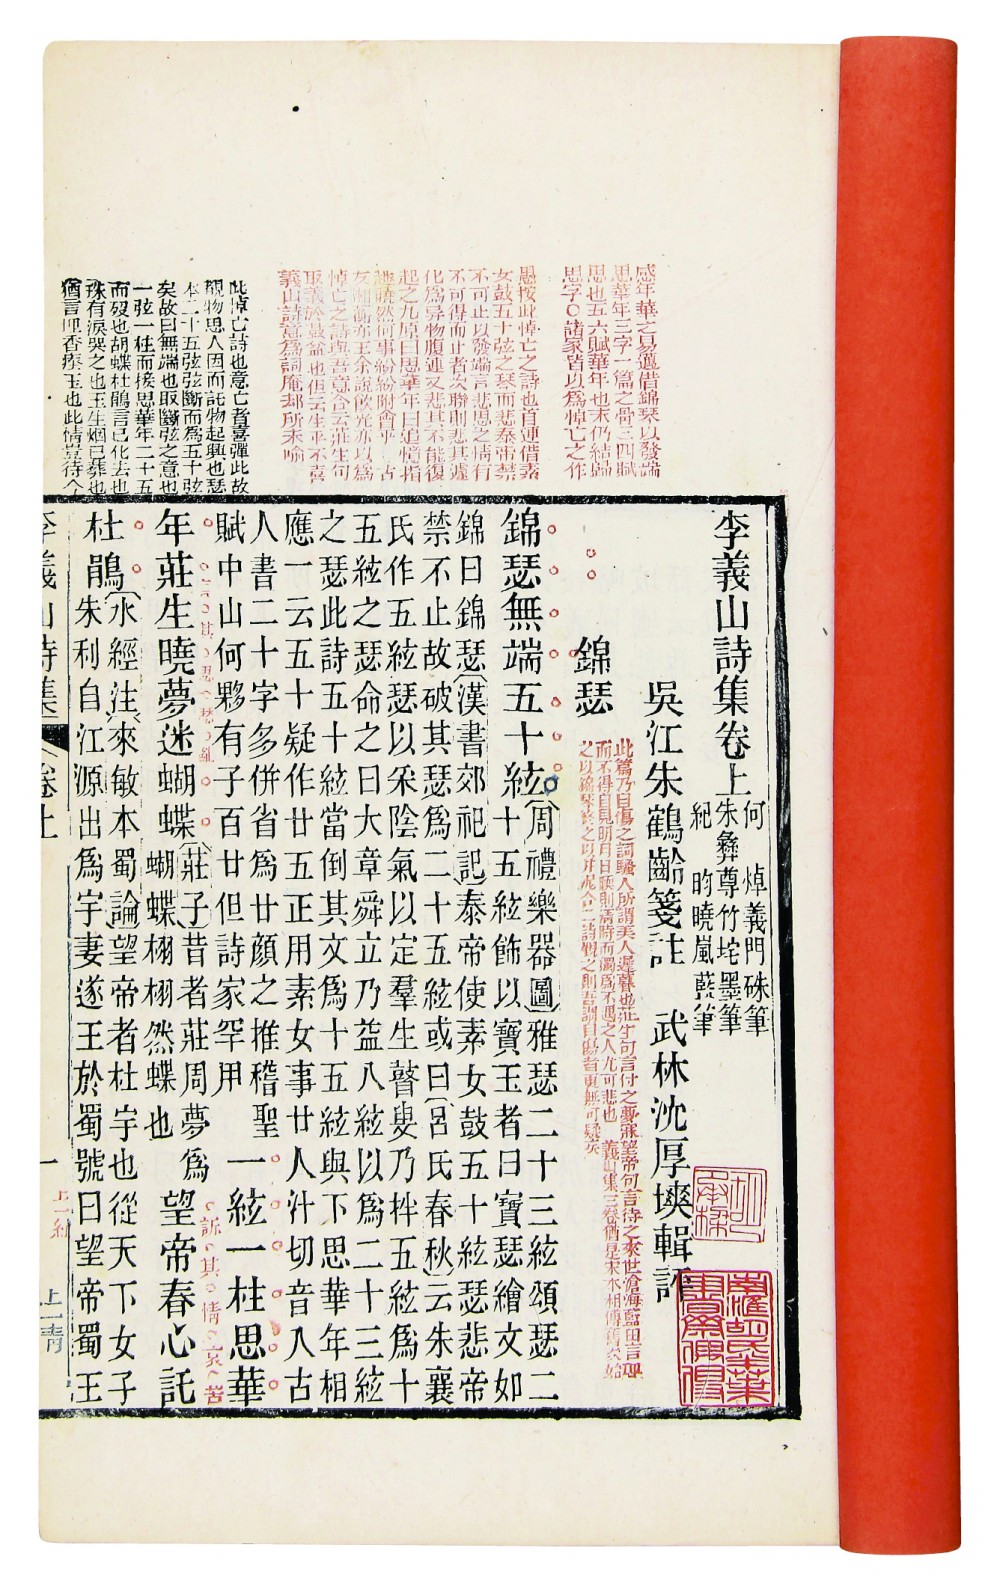 感年華之易邁借錦琴以發端
思華年三字一篇之骨三四賦
思也五六賦華年也末仍結歸
思字○諸家皆以爲悼亡之作
愚按此悼亡之詩也首連借素
女鼓五十弦之琴而悲泰帝禁
不可止以發端言悲思之情有
不可得而止者次聯則悲其遽
化爲異物腹連又悲其不能復
起之九原曰思華年曰追憶指
趣曉然何事紛紛附會乎 古
友湘蘅亦王余說飲光亦以爲
悼亡之詩與吾意合云莊生句
取義於鼓盆也但云生平不喜
義山詩意爲詞庵却所未喻
此悼亡詩也意亡者喜彈此故
覩物思人因而託物起興也瑟
本二十五弦弦斷而爲五十弦
矣故曰無端也取斷弦之意也
一弦一柱而接思華年二十五
而歿也胡蝶杜鵑言已化去也
珠有淚哭之也玉生烟已葬也
猶言埋香瘞玉也此情豈待今
李義山詩集卷上
何 焯義門硃筆
朱彝尊竹垞墨筆
紀 昀曉嵐藍筆
吳江朱鶴齡箋註 武林沈厚塽輯評
錦瑟
此篇乃自傷之詞騷人所謂美人遲暮也莊生句言付之夢寐望帝句言待之來世滄海藍田言埋
而不得自見明月日暖則清時而獨爲不遇之人尤可悲也 義山集三卷猶是宋本相傳舊次始
之以錦琴終之以井泥合二詩觀之則吾謂自傷者更無可疑矣
錦瑟無端五十絃
〔周禮樂器圖〕雅瑟二十三絃頌瑟二
十五絃飾以寶玉者曰寶瑟繪文如
錦曰錦瑟〔漢書郊祀記〕泰帝使素女鼓五十絃瑟悲帝
禁不止故破其瑟爲二十五絃或曰〔呂氏春秋〕云朱襄
氏作五絃瑟以采陰氣以定羣生瞽叟乃拌五絃爲十
五絃之瑟命之曰大章舜立乃益八絃以爲二十三絃
之瑟此詩五十絃當倒其文爲十五絃與下思華年相
應一云五十疑作廿五正用素女事廿人汁切音入古
人書二十字多併省爲廿顏之推稽聖
賦中山何夥有子百廿但詩家罕用
一絃一柱思華
年莊生曉夢迷蝴蝶
〔莊子〕昔者莊周夢爲
蝴蝶栩栩然蝶也
望帝春心託
訴其情哀苦
杜鵑
〔水經注〕來敏本蜀論〕望帝者杜宇也從天下女子
朱利自江源出爲宇妻遂王於蜀號曰望帝蜀王
李義山詩集 卷上 一